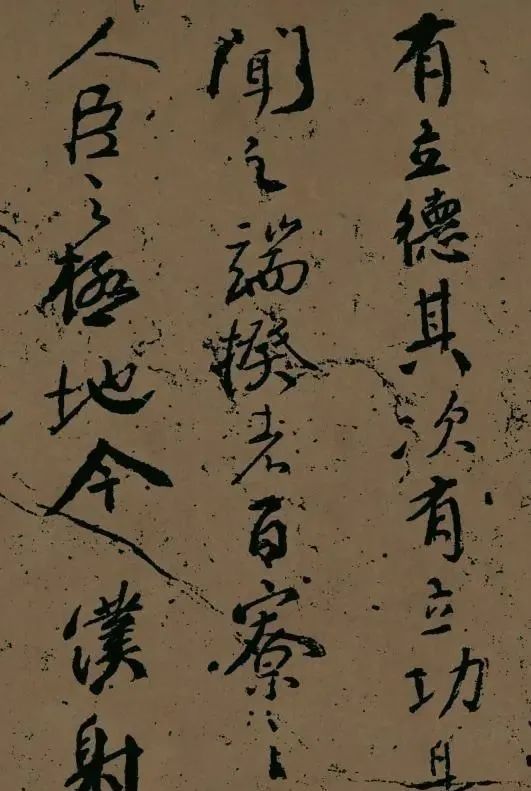 有立德其次有立功是
聞之端揆者百寮之
人臣之極地今僕射